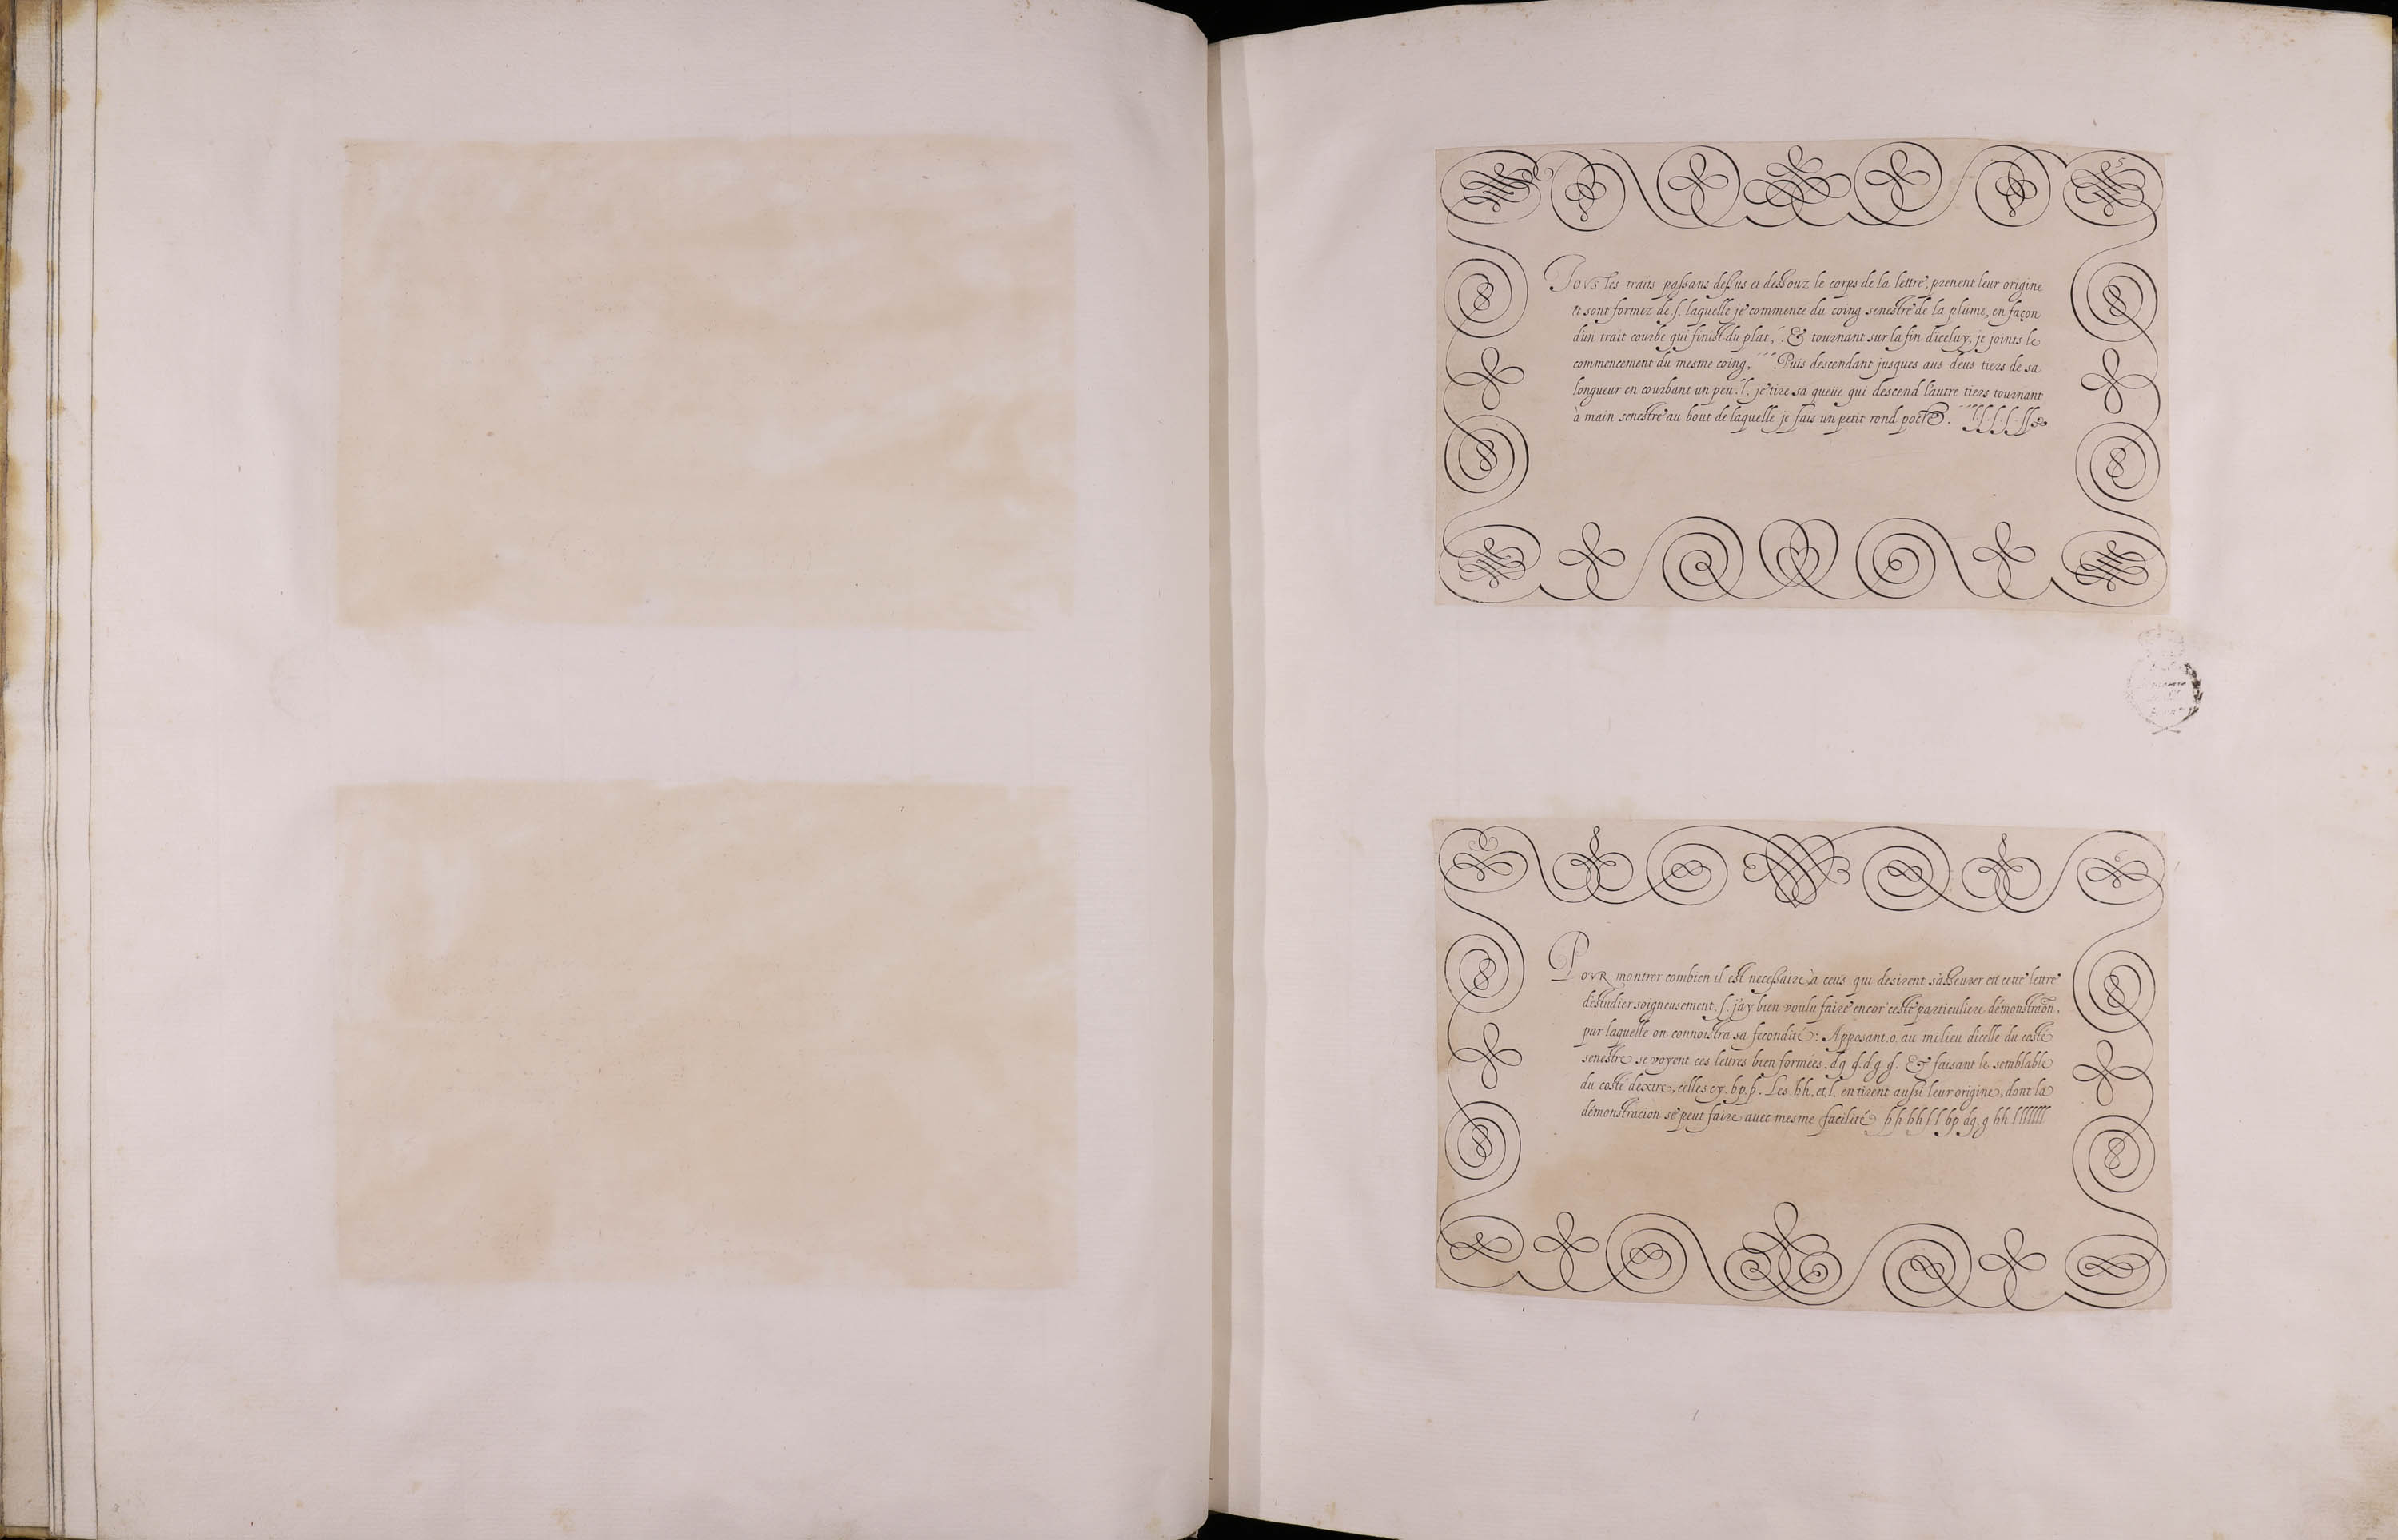 5
Tovs les traits paſsans deſsus et deſsouz le corps de la lettre, prenent leur origine
et sont formez de .ſ. laquelle je commence du coing senestre de la plume, en façon
d'un trait courbe qui finist du plat, ´. & tournant sur la fin d'iceluy, je joints le
commencement du mesme coing, ´ ´ ´ Puis descendant jusques aus deus tiers de sa
longueur en courbant un peu .l, je tire sa queüe qui descend l'autre tiers tournant
à main senestre au bout de laquelle je fais un petit rond
Povr montrer combien il est neceſsaire, à ceus qui desirent s'aſseurer en cette lettre
d'estudier soigneusement .ſ. j'ay bien voulu faire encor ceste particuliere démonstraõn,
par laquelle on connoistra sa fecondité: Apposant .o. au milieu d'icelle du costé
senestre se voyent ces lettres bien formées. & faisant le semblable
du costé dextre, celles cy. b p. þ. Les .h h. et l. en tirent auſsi leur origine, dont la
démonstracion se peut faire avec mesme facilité